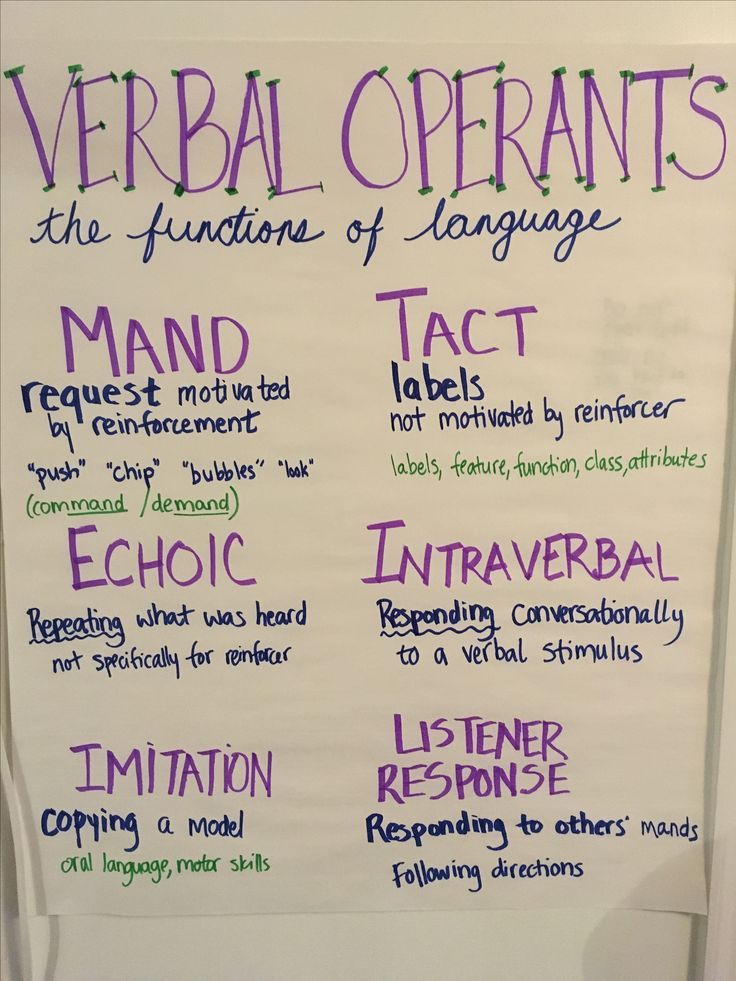 VERBAL OPERANTS
the functions of language
MAND
request motivated
by reinforcement
"push" "chip" "bubbles" "look"
(command / demand)
TACT
labels
not motivated by reinforcer
labels, feature, function, class, attributes
ECHOIC
Repeating what was heard
not specifically for reinforcer
INTRAVERBAL
Responding conversationally
to a verbal stimulus
IMITATION
copying a model
oral language, motor skills
LISTENER
RESPONSE
Responding to others' mands
Following directions